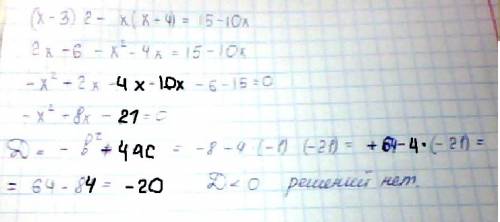 (x-3) 2 - x(x+4) = 15-10x
2x - 6 - x² - 4x = 15-10x
-x² - 2x -4x -10x - 6 - 15 = 0
-x² - 8x - 21 = 0
D = - b² + 4ac = -8 - 4 · (-1) (-21) = +64-4·(-21) =
= 64 - 84 = -20 D < 0 решений нет.